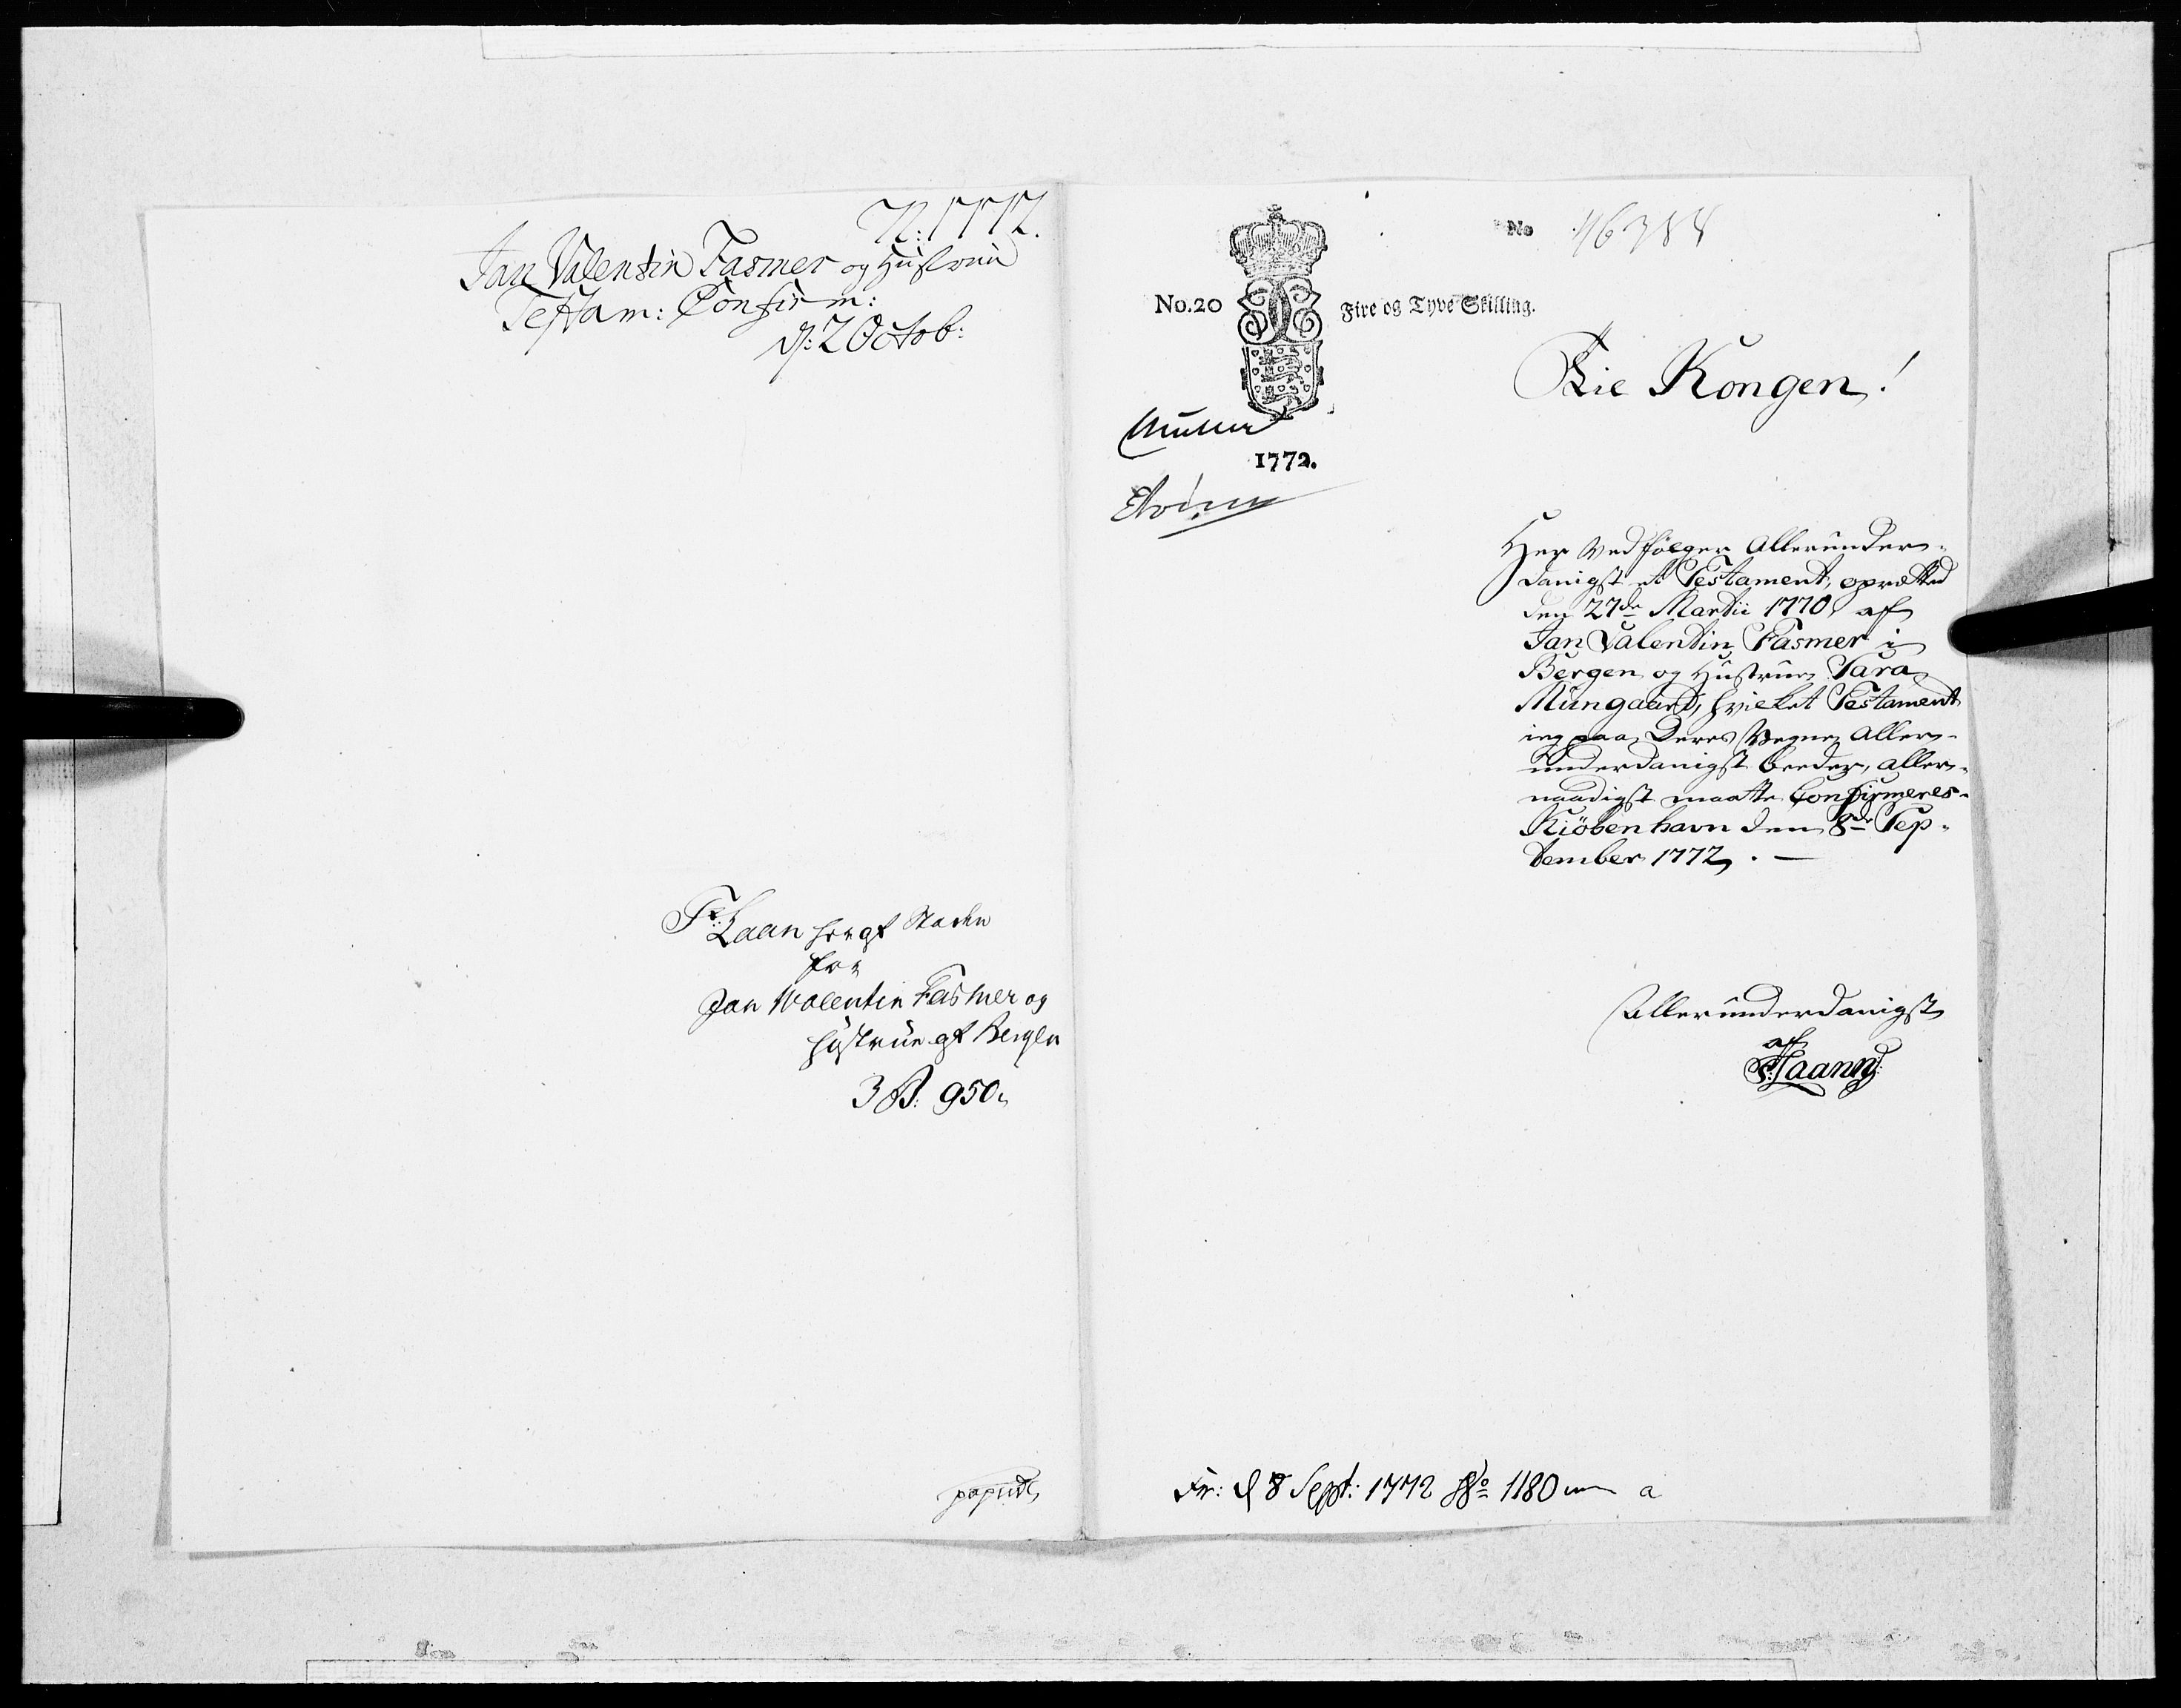 N: 1772.
Jan Valentin Fasmer og Hustrue
Testam: Confirm:
d: 2 Octob:
Fr: Laan her af Staden
for
Jan Walentin Fasmer og
Hustrue af Bergen
3 B: 950.
No 46388
No. 20 Fire og Tyve Skilling.
1772.
Til Kongen!
Her ved følger Allerunder-
danigst et Testament, oprætted
den 27de Martii 1770 af
Jan Valentin Fasmer i
Bergen og Hustrue Sara
Mungaard, hvilket Testament
ieg paa Deres Vegne Aller-
underdanigst beeder, aller-
naadigst maatte Confirmeres.
Kiöbenhavn den 8de Sep-
tember 1772. —
Allerunderdanigst
af
F: Laann
d 8 Sept: 1772 No 1180 a